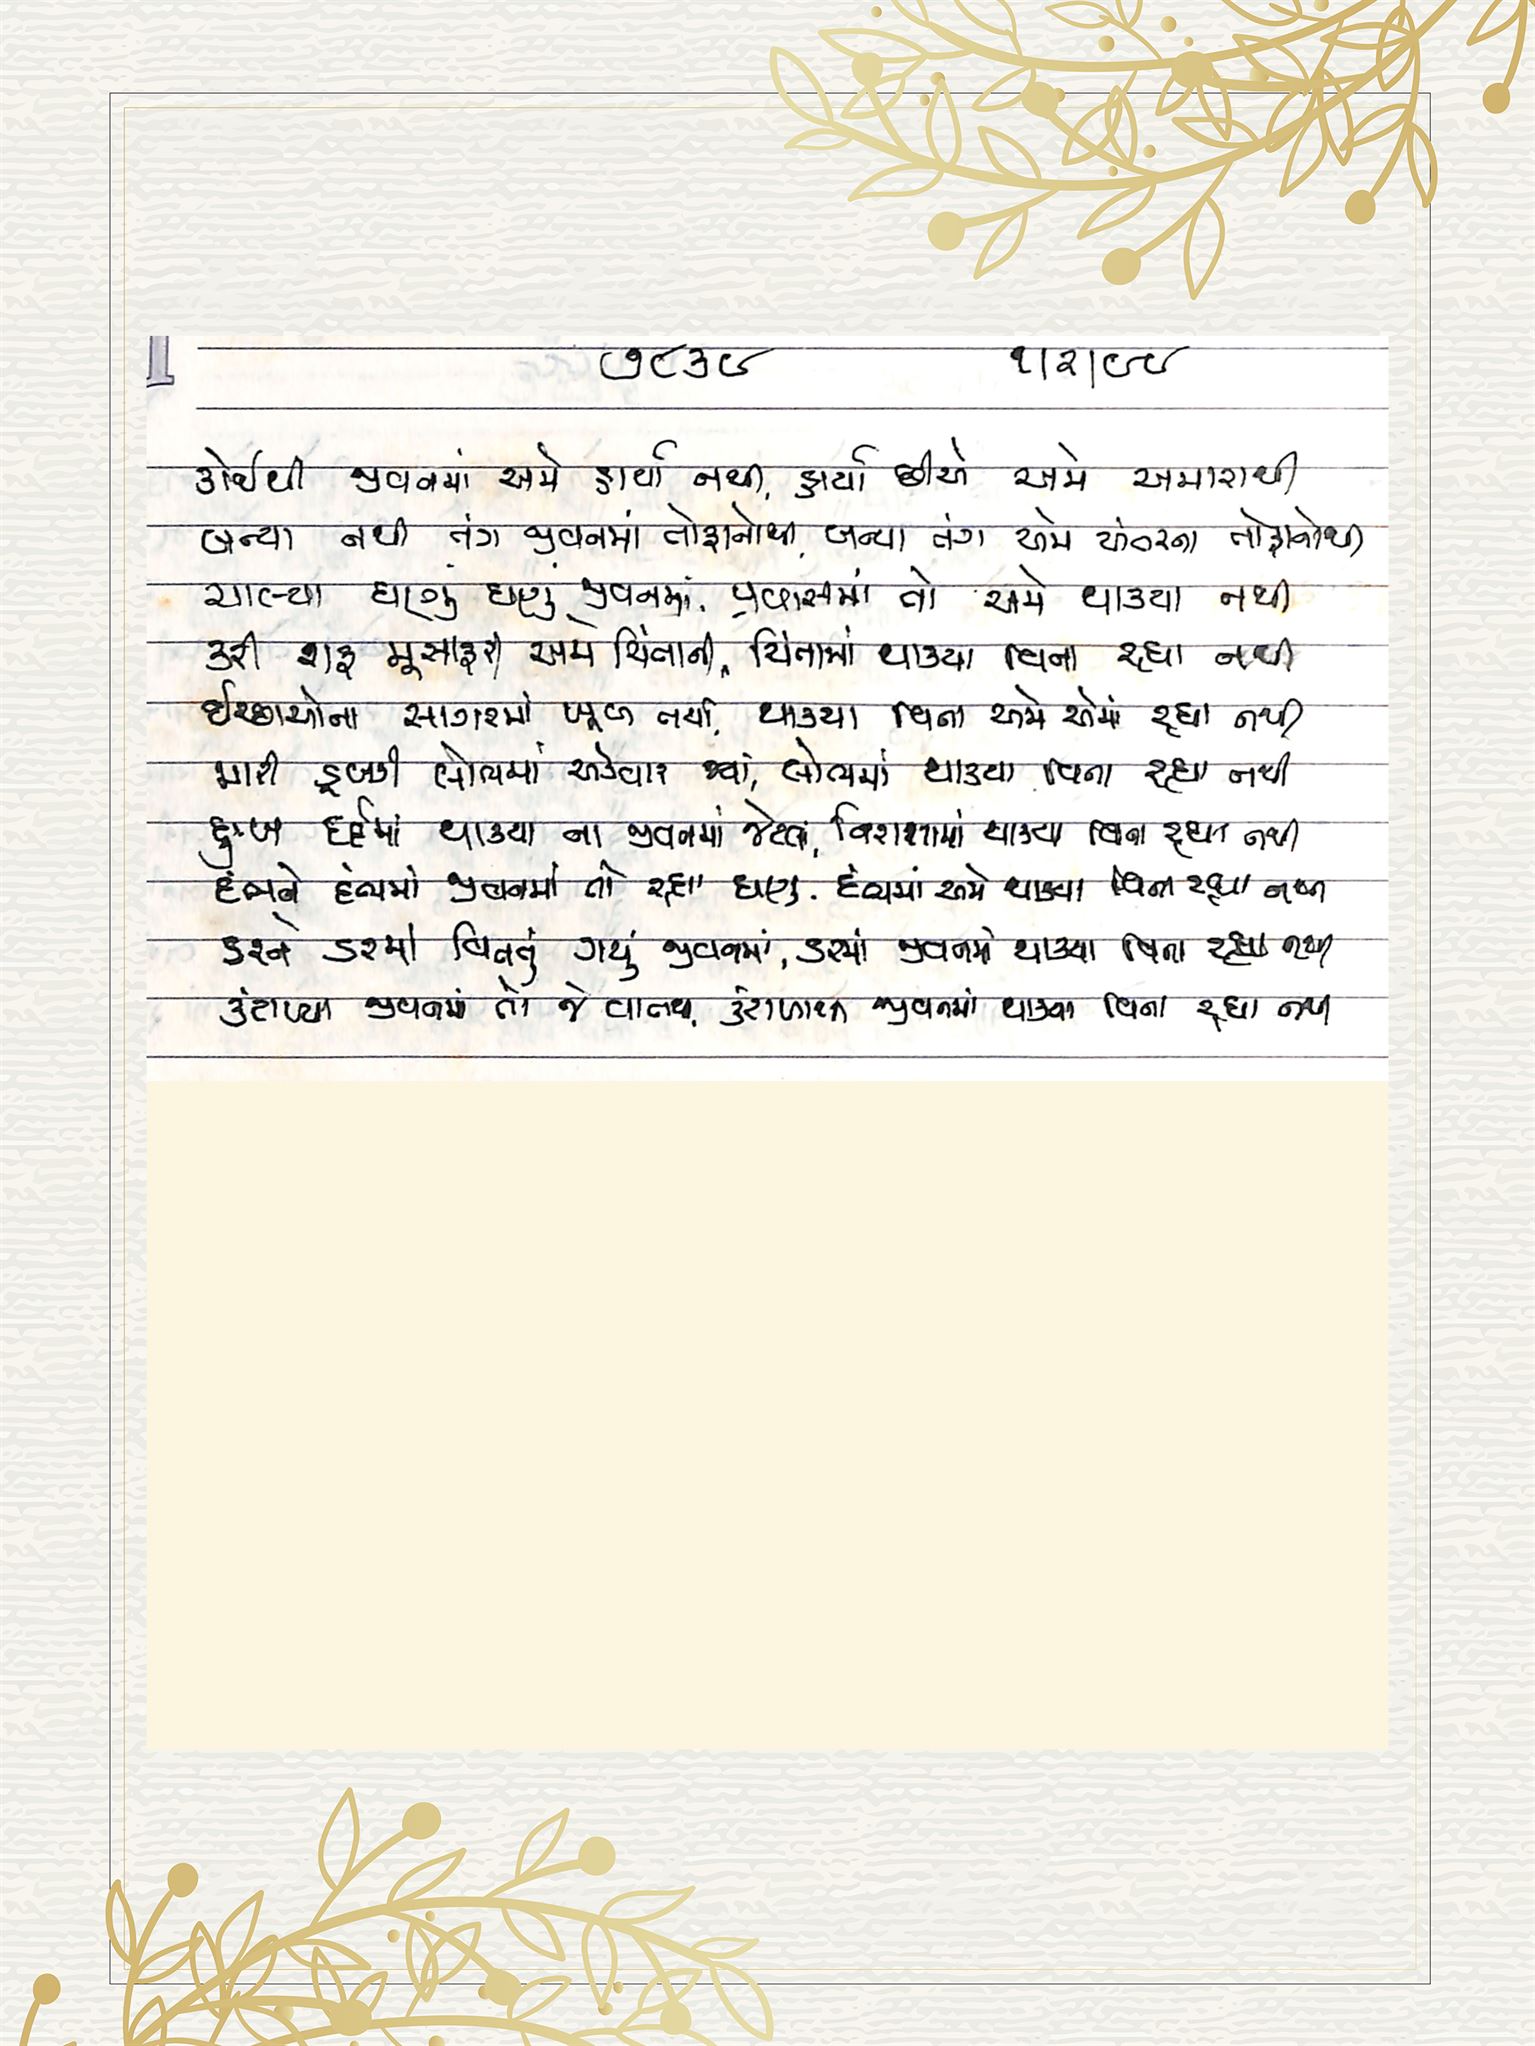 ૭૮૩૯ ૧/૨/૯૯
કોઈથી જીવનમાં અમે હાર્યા નથી, હાર્યા છીએ અમે અમારાથી
બન્યા નથી તંગ જીવનમાં તોફાનોથી, બન્યા તંગ અમે અંદરના તોફાનોથી
ચાલ્યા ઘણું ઘણું જીવનમાં, પ્રવાસમાં તો અમે થાક્યા નથી
કરી શરૂ મૂસાફરી અમે ચિંતાની, ચિંતામાં થાક્યા વિના રહ્યા નથી
ઈચ્છાઓના સાગરમાં ખૂબ તર્યા, થાક્યા વિના અમે એમાં રહ્યા નથી
મારી ડૂબકી લોભમાં એકવાર જ્યાં, લોભમાં થાક્યા વિના રહ્યા નથી
દુઃખ દર્દમાં થાક્યા ના જીવનમાં જેટલાં, નિરાશામાં થાક્યા વિના રહ્યા નથી
દંભને દંભમાં જીવનમાં તો રહ્યા ઘણુ, દંભમાં અમે થાક્યા વિના રહ્યા નથી
ડરને ડરમાં વિતતું ગયું જીવનમાં, ડરમાં જીવનમાં થાક્યા વિના રહ્યા નથી
કંટાળ્યા જીવનમાં તો જે વાતથી, કંટાળીને જીવનમાં થાક્યા વિના રહ્યા નથી